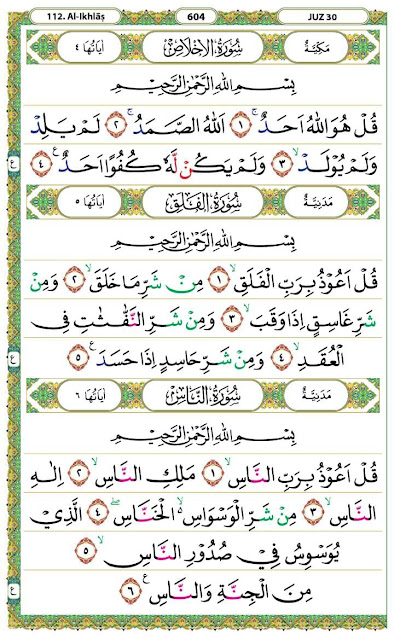 112. Al-Ikhlāṣ 604 JUZ 30
مَكِّيَّةٌ سُوْرَةُ الْاِخْلَاصِ اٰيَاتُهَا ٤
بِسْمِ اللّٰهِ الرَّحْمٰنِ الرَّحِيْمِ
قُلْ هُوَ اللّٰهُ اَحَدٌۚ ١ اَللّٰهُ الصَّمَدُۚ ٢ لَمْ يَلِدْ
وَلَمْ يُوْلَدْۙ ٣ وَلَمْ يَكُنْ لَّهٗ كُفُوًا اَحَدٌ ࣖ ٤ ع
مَدَنِيَّةٌ سُوْرَةُ الْفَلَقِ اٰيَاتُهَا ٥
بِسْمِ اللّٰهِ الرَّحْمٰنِ الرَّحِيْمِ
قُلْ اَعُوْذُ بِرَبِّ الْفَلَقِۙ ١ مِنْ شَرِّ مَا خَلَقَۙ ٢ وَمِنْ
شَرِّ غَاسِقٍ اِذَا وَقَبَۙ ٣ وَمِنْ شَرِّ النَّفّٰثٰتِ فِى
الْعُقَدِۙ ٤ وَمِنْ شَرِّ حَاسِدٍ اِذَا حَسَدَ ࣖ ٥ ع
مَدَنِيَّةٌ سُوْرَةُ النَّاسِ اٰيَاتُهَا ٦
بِسْمِ اللّٰهِ الرَّحْمٰنِ الرَّحِيْمِ
قُلْ اَعُوْذُ بِرَبِّ النَّاسِۙ ١ مَلِكِ النَّاسِۙ ٢ اِلٰهِ
النَّاسِۙ ٣ مِنْ شَرِّ الْوَسْوَاسِ ەۙ الْخَنَّاسِۖ ٤ الَّذِيْ
يُوَسْوِسُ فِيْ صُدُوْرِ النَّاسِۙ ٥
مِنَ الْجِنَّةِ وَالنَّاسِ ࣖ ٦ ع